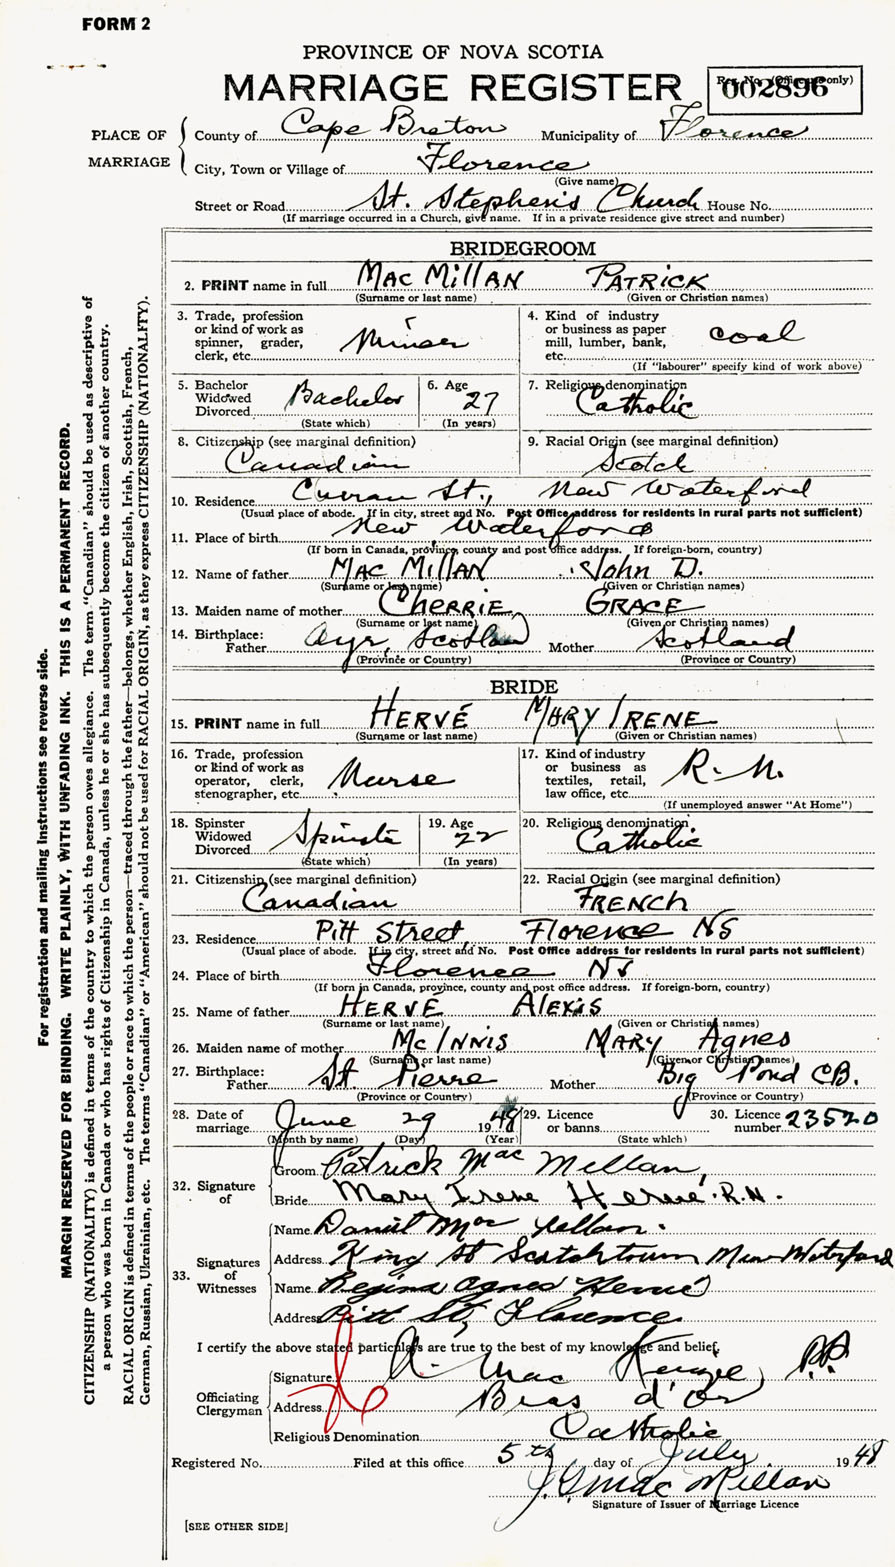 FORM 2
PROVINCE OF NOVA SCOTIA
MARRIAGE REGISTER
Reg. No. (Office use only)
002896
PLACE OF MARRIAGE
County of Cape Breton Municipality of Florence
City, Town or Village of Florence
(Give name)
Street or Road St. Stephen's Church House No.
(If marriage occurred in a Church, give name. If in a private residence give street and number)
BRIDEGROOM
2. PRINT name in full MacMillan Patrick
(Surname or last name) (Given or Christian names)
3. Trade, profession or kind of work as spinner, grader, clerk, etc. Miner
4. Kind of industry or business as paper mill, lumber, bank, etc. coal
(If "labourer" specify kind of work above)
5. Bachelor Widowed Divorced Bachelor
(State which)
6. Age 27
(In years)
7. Religious denomination Catholic
8. Citizenship (see marginal definition) Canadian
9. Racial Origin (see marginal definition) Scotch
10. Residence Curran St., New Waterford
(Usual place of abode. If in city, street and No. Post Office address for residents in rural parts not sufficient)
11. Place of birth New Waterford
(If born in Canada, province, county and post office address. If foreign-born, country)
12. Name of father MacMillan John D.
(Surname or last name) (Given or Christian names)
13. Maiden name of mother Cherrie Grace
(Surname or last name) (Given or Christian names)
14. Birthplace:
Father Ayr, Scotland Mother Scotland
(Province or Country) (Province or Country)
BRIDE
15. PRINT name in full Hervé Mary Irene
(Surname or last name) (Given or Christian names)
16. Trade, profession or kind of work as operator, clerk, stenographer, etc. Nurse
17. Kind of industry or business as textiles, retail, law office, etc. R.N.
(If unemployed answer "At Home")
18. Spinster Widowed Divorced Spinster
(State which)
19. Age 22
(In years)
20. Religious denomination Catholic
21. Citizenship (see marginal definition) Canadian
22. Racial Origin (see marginal definition) French
23. Residence Pitt Street, Florence NS
(Usual place of abode. If in city, street and No. Post Office address for residents in rural parts not sufficient)
24. Place of birth Florence NS
(If born in Canada, province, county and post office address. If foreign-born, country)
25. Name of father Hervé Alexis
(Surname or last name) (Given or Christian names)
26. Maiden name of mother McInnis Mary Agnes
(Surname or last name) (Given or Christian names)
27. Birthplace:
Father St. Pierre Mother Big Pond CB.
(Province or Country) (Province or Country)
28. Date of marriage June 29 1948
(Month by name) (Day) (Year)
29. Licence or banns
(State which)
30. Licence number 23520
32. Signature of
Groom Patrick MacMillan
Bride Mary Irene Hervé. R.N.
33. Signatures of Witnesses
Name Daniel
Address King St Scotchtown New Waterford
Name Regina Agnes Hervé
Address Pitt St, Florence
I certify the above stated particulars are true to the best of my knowledge and belief.
Officiating Clergyman
Signature A. MacKenzie, P.P.
Address Bras d'Or
Religious Denomination Catholic
Registered No. Filed at this office 5th day of July 1948
J.G. MacMillan
Signature of Issuer of Marriage Licence
[SEE OTHER SIDE]
For registration and mailing instructions see reverse side.
MARGIN RESERVED FOR BINDING. WRITE PLAINLY, WITH UNFADING INK. THIS IS A PERMANENT RECORD.
CITIZENSHIP (NATIONALITY) is defined in terms of the country to which the person owes allegiance. The term "Canadian" should be used as descriptive of
a person who was born in Canada or who has rights of Citizenship in Canada, unless he or she has subsequently become the citizen of another country.
RACIAL ORIGIN is defined in terms of the people or race to which the person—traced through the father—belongs, whether English, Irish, Scottish, French,
German, Russian, Ukrainian, etc. The terms "Canadian" or "American" should not be used for RACIAL ORIGIN, as they express CITIZENSHIP (NATIONALITY).